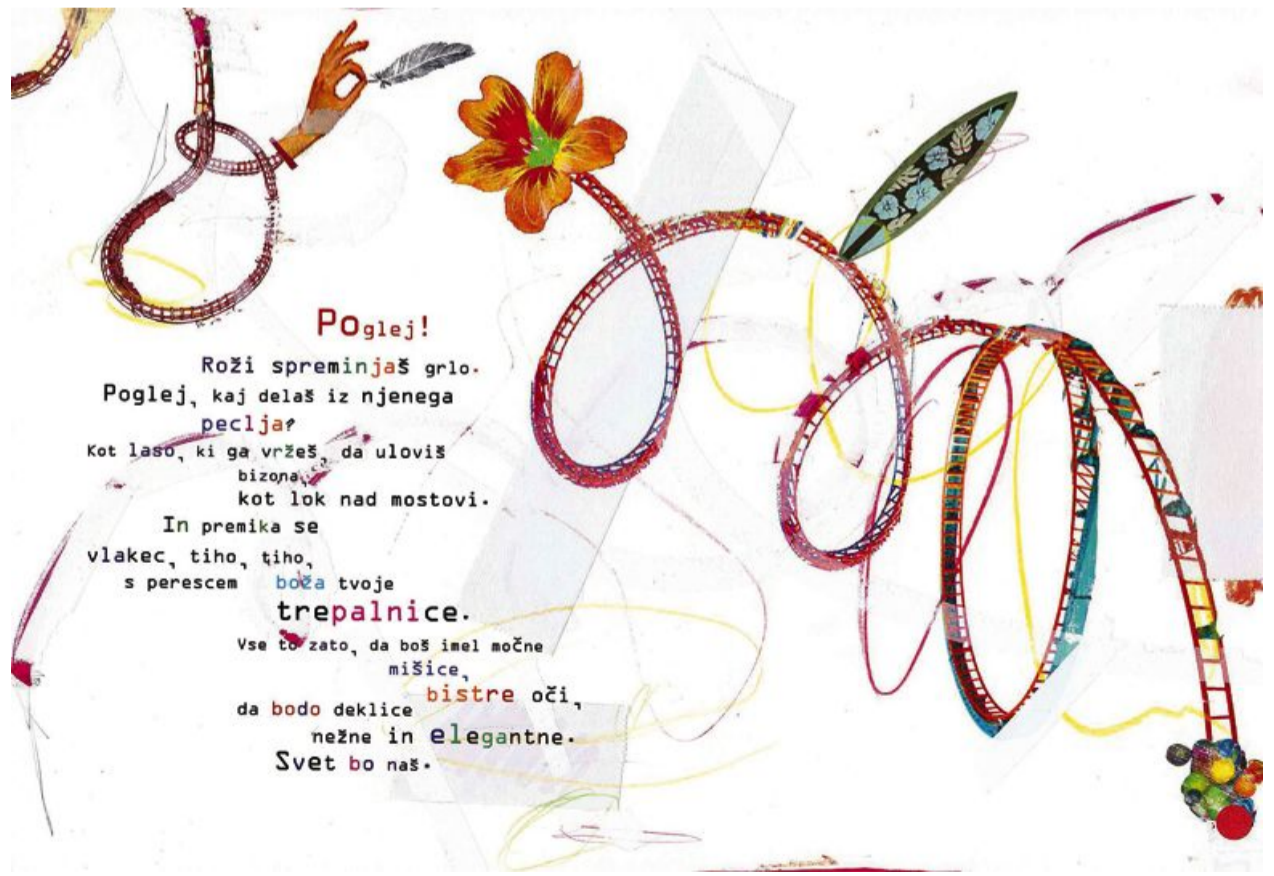 Poglej!
Roži spreminjaš grlo.
Poglej, kaj delaš iz njenega
peclja?
Kot laso, ki ga vržeš, da uloviš
bizona,
kot lok nad mostovi.
In premika se
vlakec, tiho, tiho,
s perescem boža tvoje
trepalnice.
Vse to zato, da boš imel močne
mišice,
bistre oči,
da bodo deklice
nežne in elegantne.
Svet bo naš.